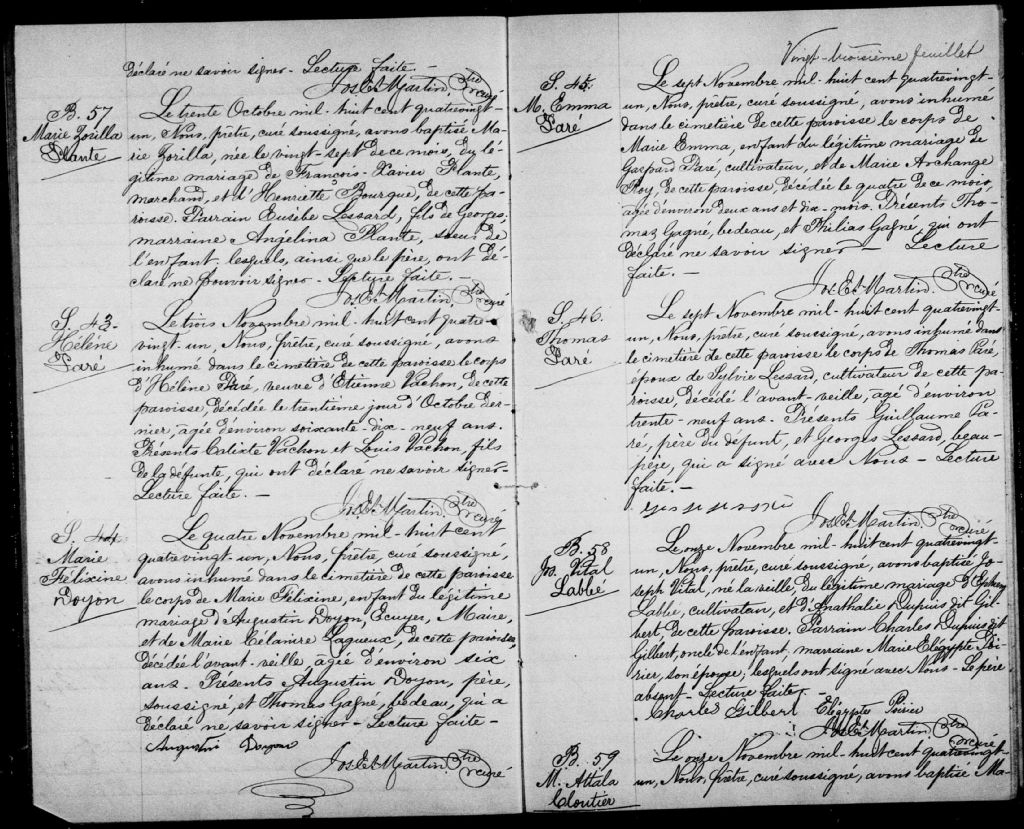 déclaré ne savoir signer - Lecture faite -
Jos. Et. Martin, Ptre curé
B. 57
Marie Zorilla
Plante
Le trente Octobre mil-huit cent quatrevingt-
un, Nous, prêtre, curé soussigné, avons baptisé Ma-
rie Zorilla, née le vingt-sept de ce mois, du lé-
gitime mariage de François-Xavier Plante,
marchand, et d'Henriette Bourque, de cette pa-
roisse. Parrain Eusèbe Lessard, fils de Georges,
marraine Angélina Plante, soeur de
l'enfant, lesquels, ainsi que le père, ont dé-
claré ne pouvoir signer - Lecture faite. -
Jos. Et. Martin, Ptre curé
S. 43
Hélène
Paré
Le trois Novembre mil-huit cent quatre-
vingt-un, Nous, prêtre, curé soussigné, avons
inhumé dans le cimetière de cette paroisse le corps
d'Hélène Paré, veuve d'Etienne Vachon, de cette
paroisse, décédée le trentième jour d'Octobre der-
nier, agée d'environ soixante-dix-neuf ans.
Présents Calixte Vachon et Louis Vachon, fils
de la défunte, qui ont déclaré ne savoir signer-
Lecture faite. -
Jos. Et. Martin, Ptre curé
S. 44
Marie
Félixine
Doyon
Le quatre Novembre mil-huit cent
quatrevingt-un, Nous, prêtre, curé soussigné,
avons inhumé dans le cimetière de cette paroisse
le corps de Marie Félixine, enfant du légitime
mariage d'Augustin Doyon, Ecuyer, Maire,
et de Marie Célanire Lagueux, de cette paroisse,
décédée l'avant-veille, agée d'environ six
ans. Présents Augustin Doyon, père,
soussigné, et Thomas Gagné, bedeau, qui a
déclaré ne savoir signer - Lecture faite -
Augustin Doyon
Jos. Et. Martin, Ptre curé
Vingt-troisième feuillet
S. 45.
M. Emma
Paré
Le sept Novembre mil-huit cent quatrevingt-
un, Nous, prêtre, curé soussigné, avons inhumé
dans le cimetière de cette paroisse le corps de
Marie Emma, enfant du légitime mariage de
Gaspard Paré, cultivateur, et de Marie Archange
Roy, de cette paroisse, décédée le quatre de ce mois,
agée d'environ deux ans et dix-mois. Présents Tho-
mas Gagné, bedeau, et Philias Gagné, qui ont
déclaré ne savoir signer - Lecture
faite. -
Jos. Et. Martin, Ptre curé
S. 46.
Thomas
Paré
Le sept Novembre mil-huit cent quatrevingt-
un, Nous, prêtre, curé soussigné, avons inhumé dans
le cimetière de cette paroisse le corps de Thomas Paré,
époux de Sylvie Lessard, cultivateur de cette pa-
roisse, décédé l'avant-veille, agé d'environ
trente-neuf ans. Présents Guillaume Pa-
ré, père du défunt, et Georges Lessard, beau-
père, qui a signé avec Nous - Lecture
faite. -
Jos. Et. Martin, Ptre curé
B. 58
Jos. Vital
Labbé
Le onze Novembre mil-huit cent quatrevingt-
un, Nous, prêtre, curé soussigné, avons baptisé Jo-
seph Vital, né la veille, du légitime mariage
Labbé, cultivateur, et d'Anathalie Dupuis dit Gil-
bert, de cette paroisse. Parrain Charles Dupuis dit
Gilbert, oncle de l'enfant, marraine Marie Elégypte Poi-
rier, son épouse; lesquels ont signé avec Nous - Le père
absent - Lecture faite. -
Charles Gilbert Elégypte Poirier
Jos. Et. Martin, Ptre curé
B. 59
M. Attala
Cloutier
Le onze Novembre mil-huit cent quatrevingt-
un, Nous, prêtre, curé soussigné, avons baptisé Ma-